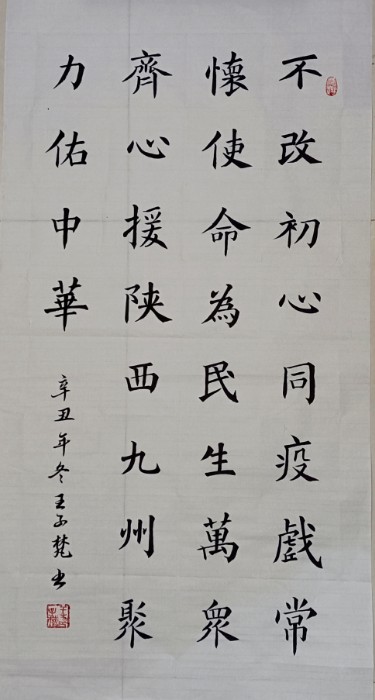 不改初心同疫戲常
懷使命為民生萬眾
齊心援陕西九州聚
力佑中華
辛丑年冬王子梵书